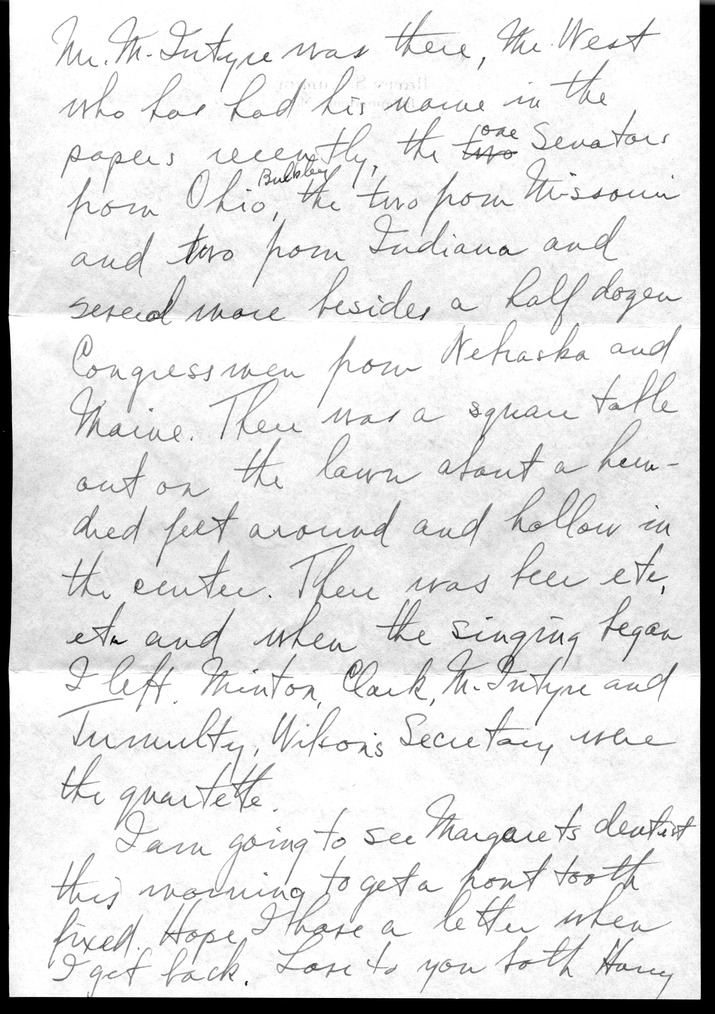 Mr. McIntyre was there, Mr. West
who has had his name in the
papers recently, the two one Senators
from Ohio, Bulkley the two from Missouri
and two from Indiana and
several more besides a half dozen
Congressmen from Nebraska and
Maine. There was a square table
out on the lawn about a hun-
dred feet around and hollow in
the center. There was beer etc,
etc and when the singing began
I left. Minton, Clark, McIntyre and
Tumulty, Wilson's Secretary were
the quartette.
I am going to see Margarets dentist
this morning to get a front tooth
fixed. Hope I have a letter when
I get back. Love to you both Harry